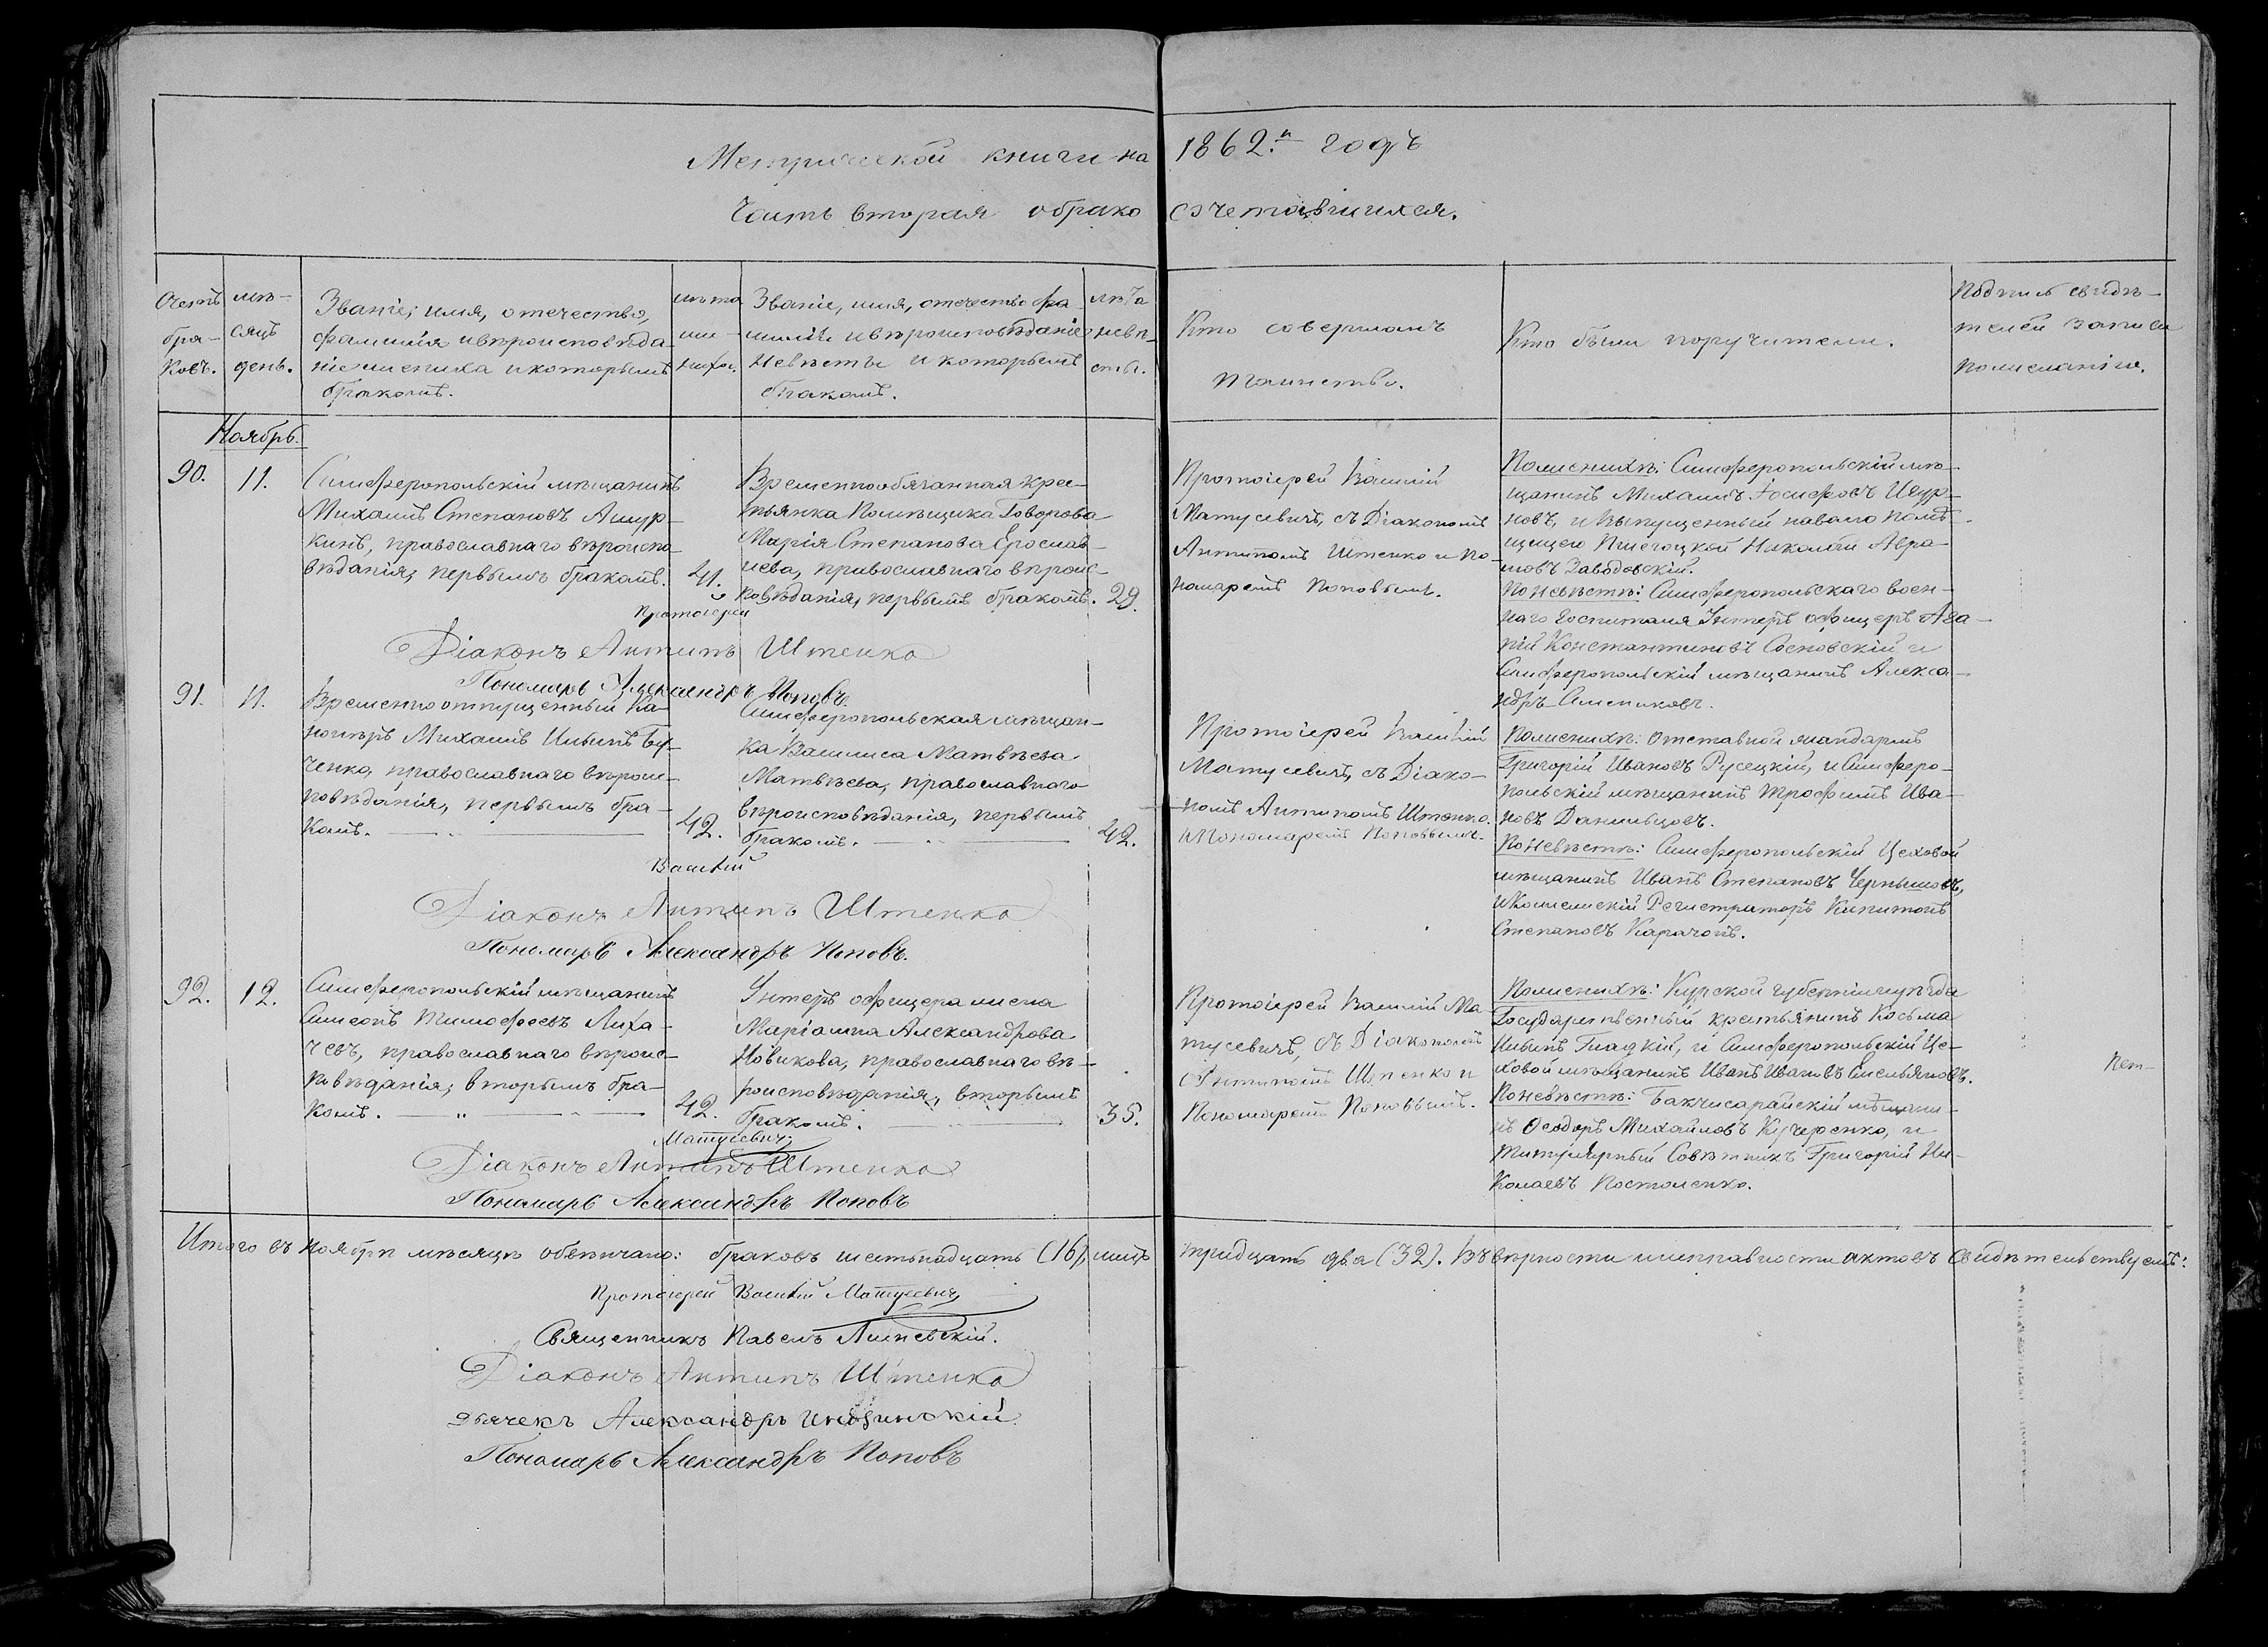 Метрической книги на 1862.й годъ
Часть вторая о брако сочетавшихся.
Счетъ
бра-
ковъ.
мѣ-
сяцъ
день.
Званіе, имя, отечество,
фамилія и вѣроисповѣда-
ніе жениха и которымъ
бракомъ.
лѣта
же-
ниха.
Званіе, имя, отечество фа-
милія и вѣроисповѣданіе
невѣсты и которымъ
бракомъ.
лѣта
невѣ-
сты.
Кто совершалъ
таинство.
Кто были поручители.
Подпись свидѣ-
телей записи
по желанію.
Ноябрь.
90.
11.
Симферопольскій мѣщанинъ
Михаилъ Степановъ Ашур-
кинъ, православнаго вѣроиспо-
вѣданія, первымъ бракомъ.
41.
Временнообязанная крес-
тьянка Помѣщика Говорова
Марія Степанова Ерослав-
цева, православнаго вѣроис-
повѣданія, первымъ бракомъ.
29.
Протоіерей Василій
Матусевичъ, съ Діакономъ
Антипомъ Штенко и По-
номаремъ Поповымъ.
По женихѣ: Симферопольскій мѣ-
щанинъ Михаилъ Іосифовъ
новъ, и выпущенный на волю помѣ-
щицею Николай Авра-
мовъ Заводовскій.
По невѣстѣ: Симферопольскаго воен-
наго госпиталя Унтеръ офицеръ Ага-
пій Константиновъ Сосновскій и
Симферопольскій мѣщанинъ Алекса-
ндръ
Протоіерей
Діаконъ Антипъ Штенко
Пономарь Александръ Поповъ.
91.
11.
Временно отпущенный Ка-
нониръ Михаилъ Бу-
ченко, православнаго вѣроис-
повѣданія, первымъ бра-
комъ.
42.
Симферопольская мѣщан-
ка Василиса Матвѣева
Матвѣева, православнаго
вѣроисповѣданія, первымъ
бракомъ.
42.
Протоіерей Василій
Матусевичъ, съ Діако-
номъ Антипомъ Штенко.
и Пономаремъ Поповымъ.
По женихѣ: Отставной жандармъ
Григорій Ивановъ Русецкій, и Симферо-
польскій мѣщанинъ Трофимъ Ива-
новъ Данильцовъ.
По невѣстѣ: Симферопольскій Цеховой
мѣщанинъ Иванъ Степановъ Чернышовъ,
и Колежскій Регистраторъ Капитонъ
Степановъ
Василій
Діаконъ Антипъ Штенко
Пономарь Александръ Поповъ.
92.
12.
Симферопольскій мѣщанинъ
Симеонъ Тимофеевъ Лиха-
чевъ, православнаго вѣроис-
повѣданія, вторымъ бра-
комъ.
42.
Унтеръ офицера жена
Маріамна Александрова
Новикова, православнаго вѣ-
роисповѣданія, вторымъ
бракомъ.
35.
Протоіерей Василій Ма
тусевичъ, съ Діакономъ
Антипомъ Штенко и
Пономаремъ Поповымъ.
По женихѣ: Курской губерніи уѣзда
Государственный крестьянинъ Косьма
Гладкій, и Симферопольскій Це-
ховой мѣщанинъ Иванъ Ивановъ Емельяновъ.
По невѣстѣ: Бакчисарайскій мѣщани-
нъ Ѳеодоръ Михайловъ Кучеренко, и
Титулярный Совѣтникъ Григорій Ни-
колаевъ Постоленко.
Матусевичъ
Діаконъ Антипъ Штенко
Пономарь Александръ Поповъ
Итого въ ноябрѣ мѣсяцѣ обвѣнчано: браковъ шестьнадцать (16), лицъ тридцать два (32). Въ вѣрности и исправности актовъ свидѣтельствуемъ:
Протоіерей Василій Матусевичъ
Священникъ Павелъ
Діаконъ Антипъ Штенко
Дьячекъ Александръ
Пономарь Александръ Поповъ